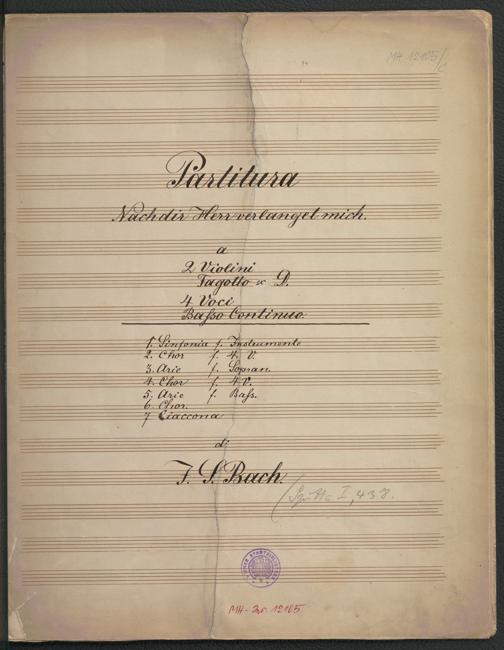 MH 12105/c
Partitura
Nach dir Herr verlanget mich.
a
2 Violini
Fagotto
4 Voci
Basso Continuo.
1. Sinfonia f. Instrumente
2. Chor f. 4. V.
3. Arie f. Sopran.
4. Chor f. 4. V.
5. Arie f. Bass.
6. Chor.
7 Ciaccona
di
J. S. Bach.
(Spitta I, 438.
MH- 12105